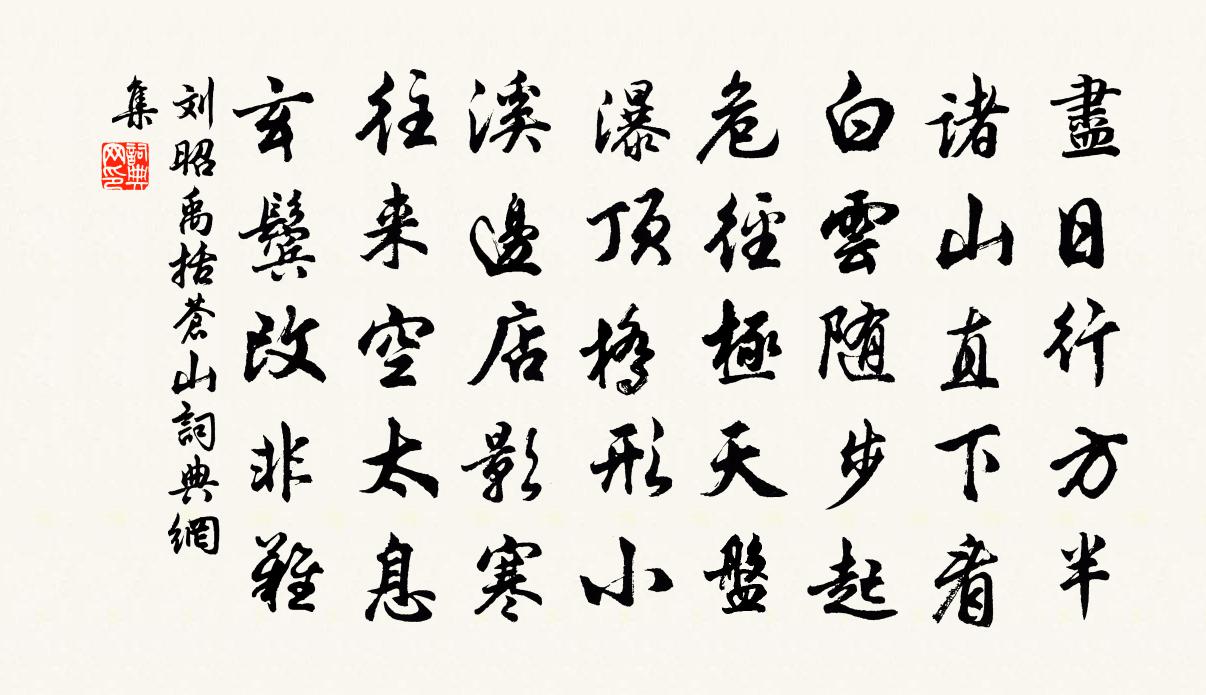 盡日行方半
诸山直下看
白雲随步起
危徑極天盤
瀑顶橋形小
溪邊店影寒
往来空太息
玄鬢改非難
刘昭禹括蒼山詞典網
集
詞典网印